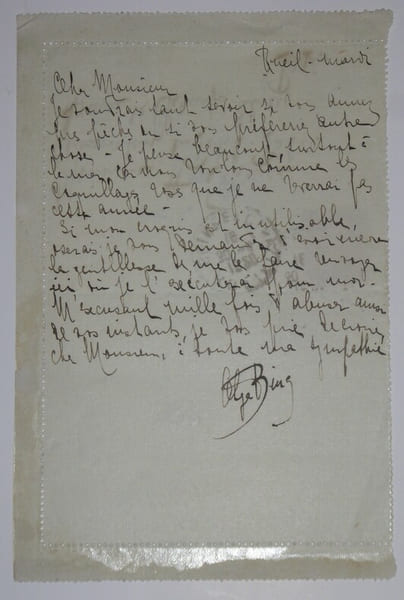 Rueil-mardi
Cher Monsieur
Je voudrais tant savoir si vous aimez
les pêches ou si vous préférez autre
chose - Je pense beaucoup, surtout à
la mer, où nous voulons comme les
Coquillages roses que je ne verrai pas
cette année -
Si mon croquis est inutilisable,
oserai-je vous demander d'avoir encore
la gentillesse de me le faire renvoyer
ici, où je l'exécuterai pour moi -
M'excusant mille fois d'abuser ainsi
de vos instants, je vous prie de croire,
cher Monsieur, à toute ma sympathie
Olga Bing